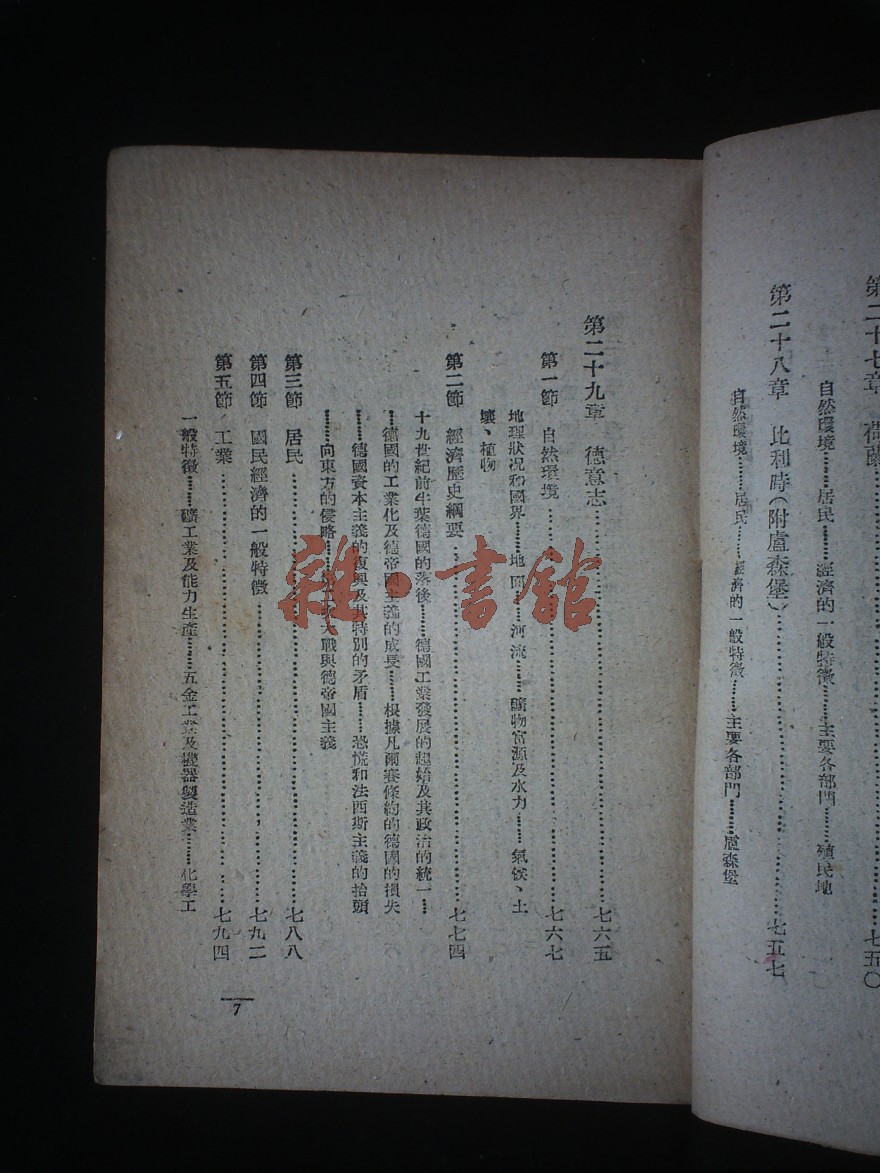 第二十七章 荷蘭……七五〇
自然環境……居民……經濟的一般特徵……主要各部門……殖民地
第二十八章 比利時(附盧森堡)……七五七
自然環境……居民……經濟的一般特徵……主要各部門……盧森堡
第二十九章 德意志……七六五
第一節 自然環境……七六七
地理狀况和國界……地面……河流……礦物富源及水力……氣候、土
壤、植物
第二節 經濟歷史綱要……七七四
十九世紀前半葉德國的落後……德國工業發展的起始及其政治的統一……
……德國的工業化及德帝國主義的成長……根據凡爾賽條約的德國的損失
……德國資本主義的復興及其特別的矛盾……恐慌和法西斯主義的抬頭
……向東方的侵略……大戰與德帝國主義
第三節 居民……七八八
第四節 國民經濟的一般特徵……七九二
第五節 工業……七九四
一般特徵……礦工業及能力生產……五金工業及機器製造業……化學工
7
雜·書館